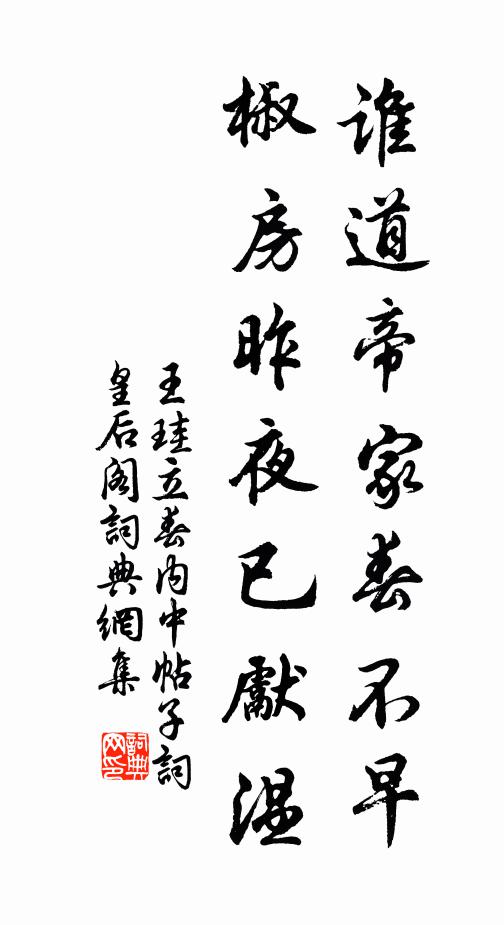 誰道帝家春不早
椒房昨夜已獻溫
王珪立春內中帖子詞
皇后閣詞典網集
詞典網印